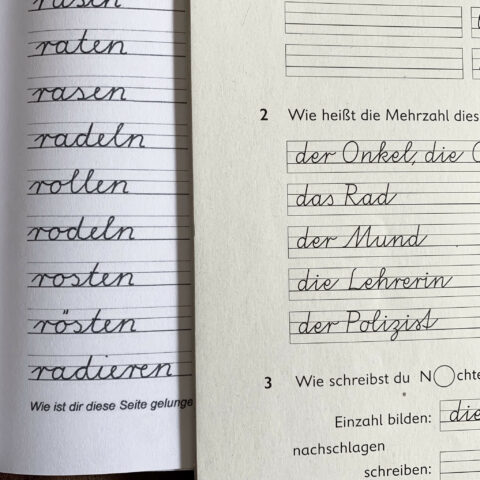 raten
rasen
radeln
rollen
rodeln
rosten
rösten
radieren
Wie ist dir diese Seite gelunge
2 Wie heißt die Mehrzahl dies
der Onkel, die O
das Rad
der Mund
die Lehrerin
der Polizist
3 Wie schreibst du N◯chte
Einzahl bilden: die
nachschlagen
schreiben: